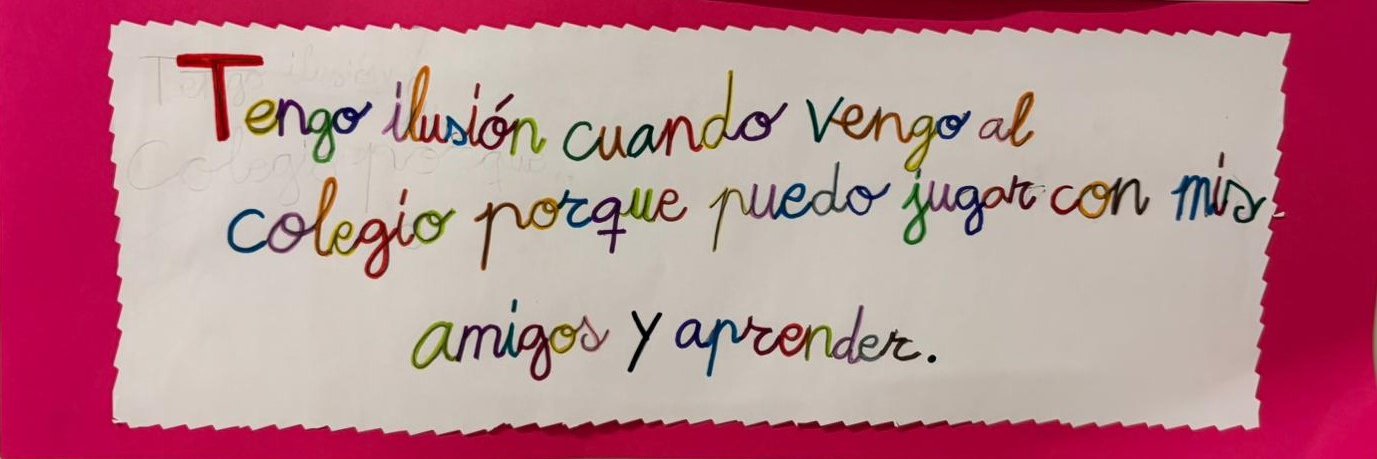 Tengo ilusión cuando vengo al
colegio porque puedo jugar con mis
amigos y aprender.